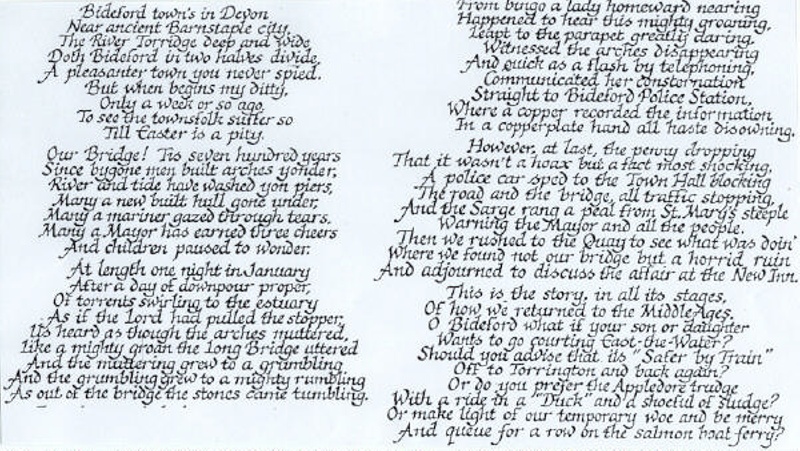 Bideford town's in Devon
Near ancient Barnstaple city,
The River Torridge deep and wide
Doth Bideford in two halves divide,
A pleasanter town you never spied.
But when begins my ditty,
Only a week or so ago,
To see the townsfolk suffer so
Till Easter is a pity.
Our Bridge! Tis seven hundred years
Since bygone men built arches yonder,
River and tide have washed yon piers,
Many a new built hull gone under,
Many a mariner gazed through tears.
Many a Mayor has earned three cheers
And children paused to wonder.
At length one night in January
After a day of downpour proper,
Of torrents swirling to the estuary
As if the Lord had pulled the stopper,
It's heard as though the arches muttered,
Like a mighty groan the Long Bridge uttered
And the muttering grew to a grumbling
And the grumbling grew to a mighty rumbling
As out of the bridge the stones came tumbling.
From bingo a lady homeward nearing
Happened to hear this mighty groaning,
Leapt to the parapet greatly daring,
Witnessed the arches disappearing
And quick as a flash by telephoning,
Communicated her consternation
Straight to Bideford Police Station,
Where a copper recorded the information
In a copperplate hand all haste disowning.
However, at last, the penny dropping
That it wasn't a hoax but a fact most shocking,
A police car sped to the Town Hall blocking
The road and the bridge, all traffic stopping,
And the Sarge rang a peal from St. Mary's steeple
Warning the Mayor and all the people.
Then we rushed to the Quay to see what was doin'
Where we found not our bridge but a horrid ruin
And adjourned to discuss the affair at the New Inn.
This is the story, in all its stages,
Of how we returned to the Middle Ages.
O Bideford what if your son or daughter
Wants to go courting East-the-Water?
Should you advise that its "Safer by Train"
Off to Torrington and back again?
Or do you prefer the Appledore trudge
With a ride in a "Duck" and a shoeful of sludge?
Or make light of our temporary woe and be merry
And queue for a row on the salmon boat ferry?